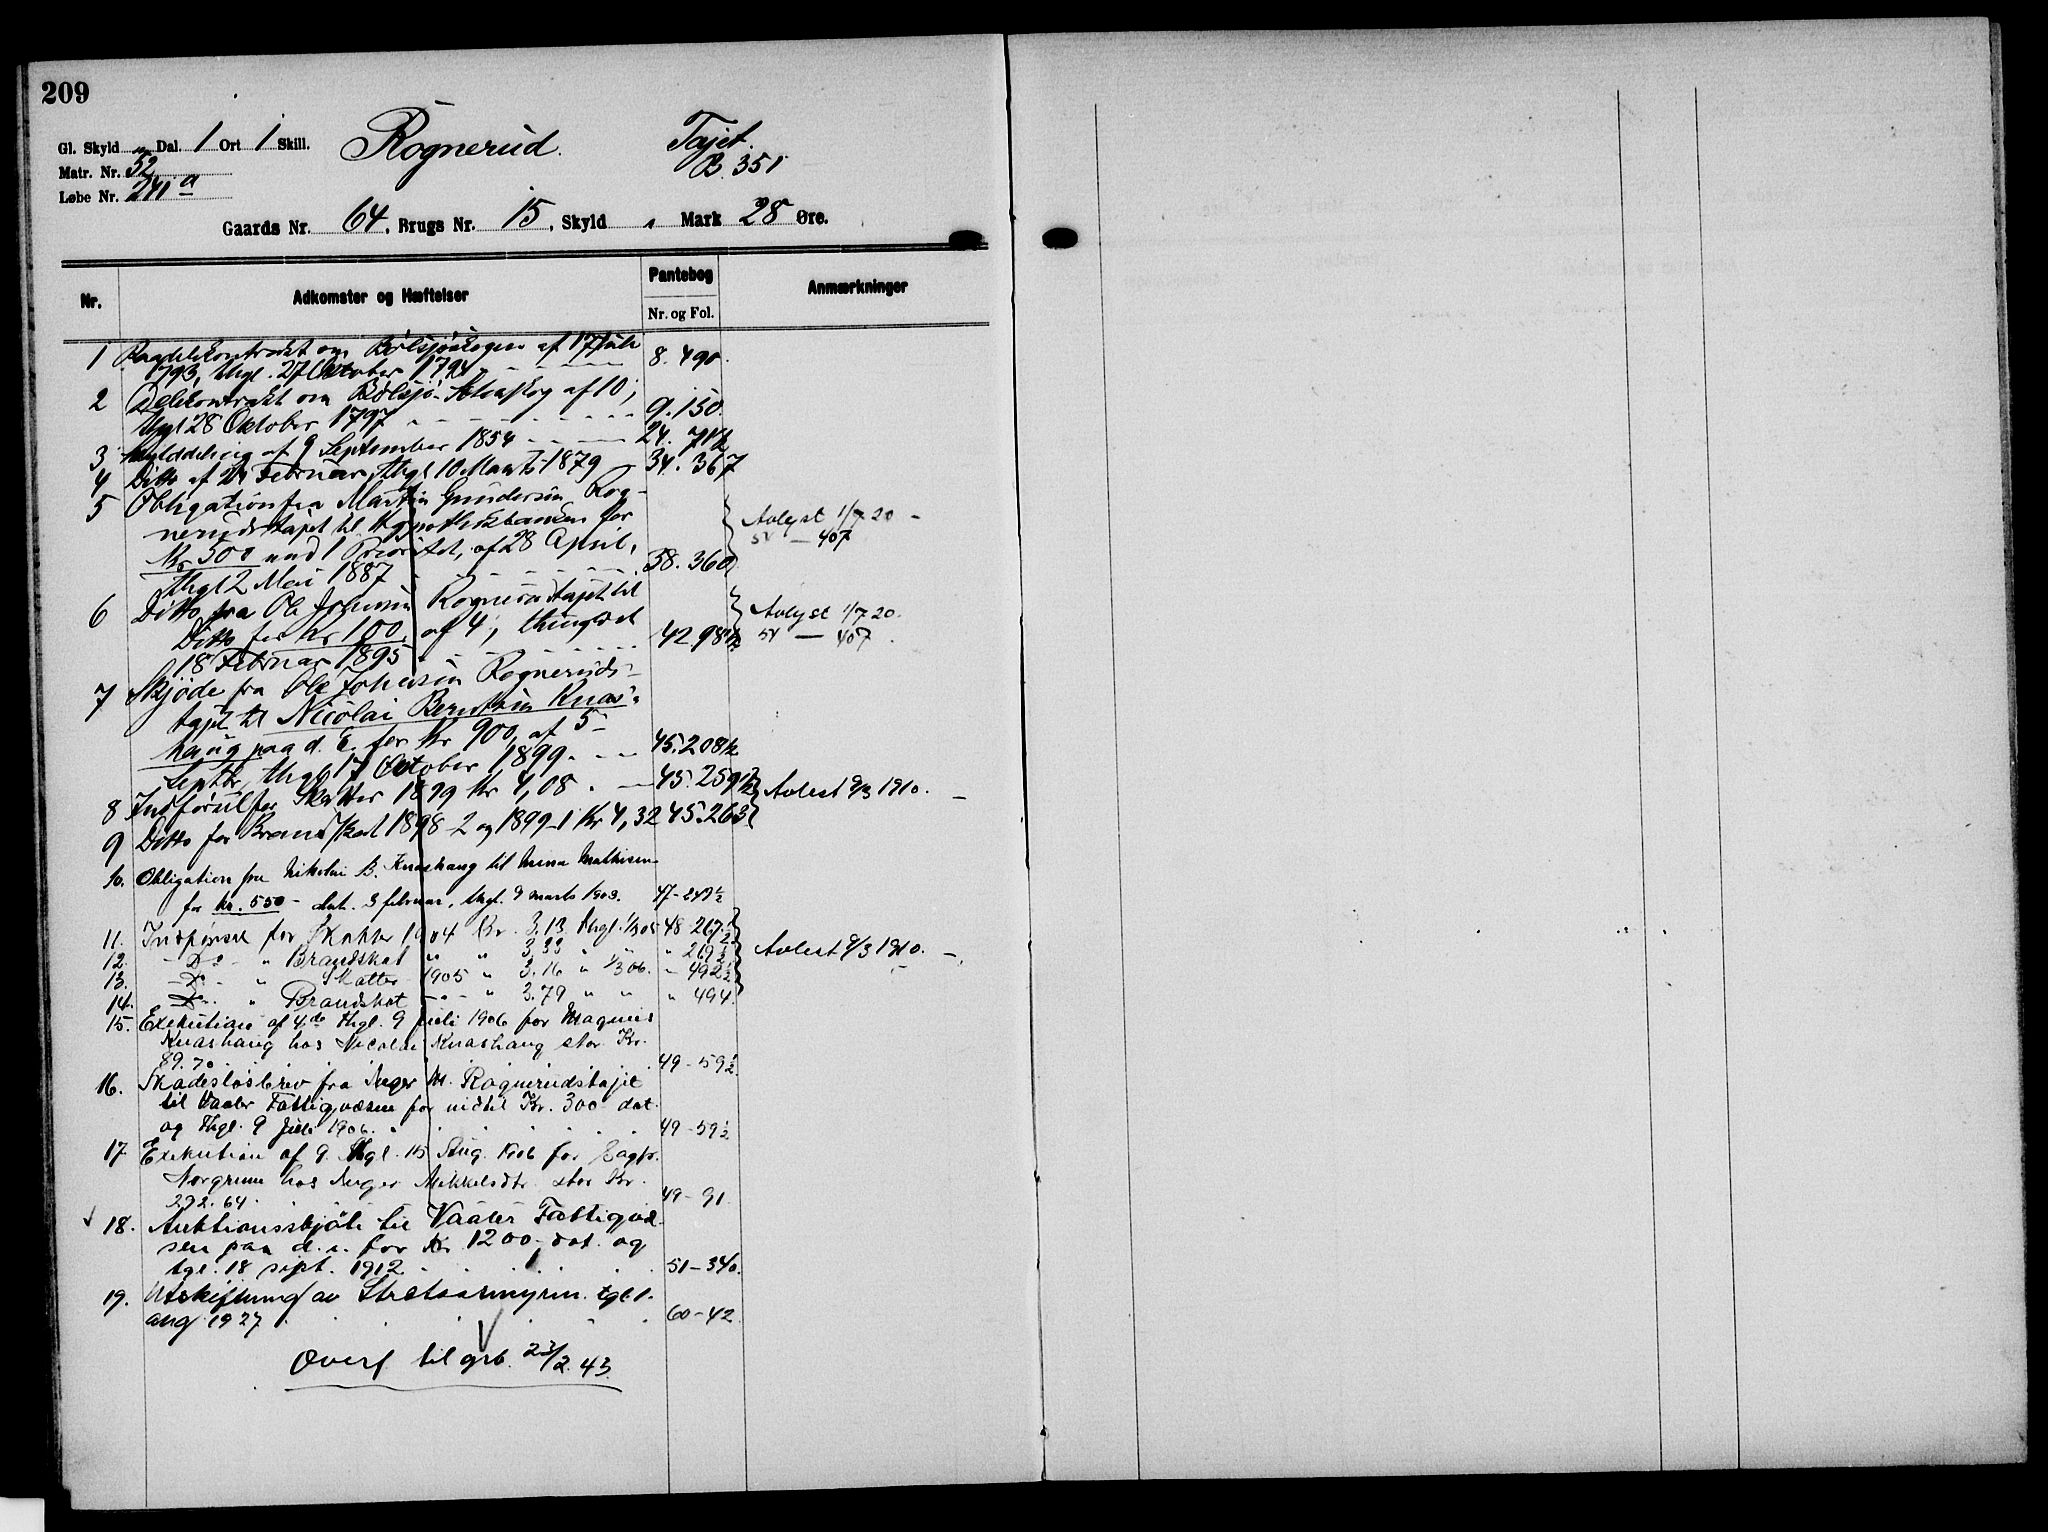 209
Gl. Skyld „ Dal. 1 Ort 1 Skill.
Matr. Nr. 52
Løbe Nr. 241 a
Rognerud. Tajet.
B. 351
Gaards Nr. 64, Brugs Nr. 15, Skyld „ Mark 28 Øre.
Nr. Adkomster og Hæftelser Pantebog Anmærkninger
Nr. og Fol.
1 om af 17 Juli
1793, thgl. 27 Oktober 1794 8. 490.
2 Delekontrakt om Bølsjø af 10,
thgl 28 Oktober 1797 9. 150.
3 Skylddeling af 9 September 1854 24. 71½
4 Ditto af Februar, thgl 10 Marts 1879 34. 367
5 Obligation fra Martin Gundersen Rog-
nerudstajet til Hypothekbanken for
Kr 500 mod 1 Prioritet, af 28 April,
thgl 2 Mai 1887 38. 360
Avlyst 1/7 20 –
54 — 407
6 Ditto fra Ole Johnsen Rognerudstajet til
Ditto for Kr 100, af 4, thinglæst
18 Februar 1895. 42 98½
Avlyst 1/7 20.
54 — 407.
7 Skjøde fra Ole Johnsen Rogneruds-
tajet til Nicolai Berntsen Knas-
haug paa d. E. for Kr 900, af 5
Septbr, thgl 17 October 1899. 45. 208½
8 Indførsel for Skatter 1899 Kr 4,08. 45. 259½
9 Ditto for Brandskat 1898-2 og 1899-1 Kr 4,32 45. 263
Avlest 9/3 1910. –
10. Obligation fra Nikolai B. Knashaug til Mina Mathisen
for kr. 550 – dat. 3 februar, thgl. 9 marts 1903. 47 – 249½
11. Indførsel for Skatter 1904 Kr. 3.13 thgl. 1/3 05 48 267½
12. – Do – " Brandskat " " 3,33 " " " 269½
13. – Do – " Skatter 1905 " 3.16 " 1/3 06. – 492½
14. – Do – " Brandskat – " – " 3.79 " " " 494.
Avlest 9/3 1910. –
15. Exekution af 4de thgl. 9 juli 1906 for Magnus
Knashaug hos Nicolai Knashaug stor Kr.
89.70. 49 – 59½
16. Skadesløsbrev fra Inger M. Rognerudstajet
til Vaaler Fattigvæsen for indtil Kr. 300 dat.
og thgl. 9 juli 1906. 49 – 59½
17. Exekution af 9. thgl. 15 Aug. 1906 for
hos Inger Mikkelsdtr. stor Kr.
292.64. 49 – 91.
18. Auktionsskjøte til Vaaler Fattigvæ-
sen paa d. e. for Kr. 1200 – dat. og
tgl. 18 sept. 1912. 51 – 340.
19. Utskiftning av Strætsaamyren. tgl. 1.
aug. 1927 60 – 42.
Overf til grb. 23/2. 43.